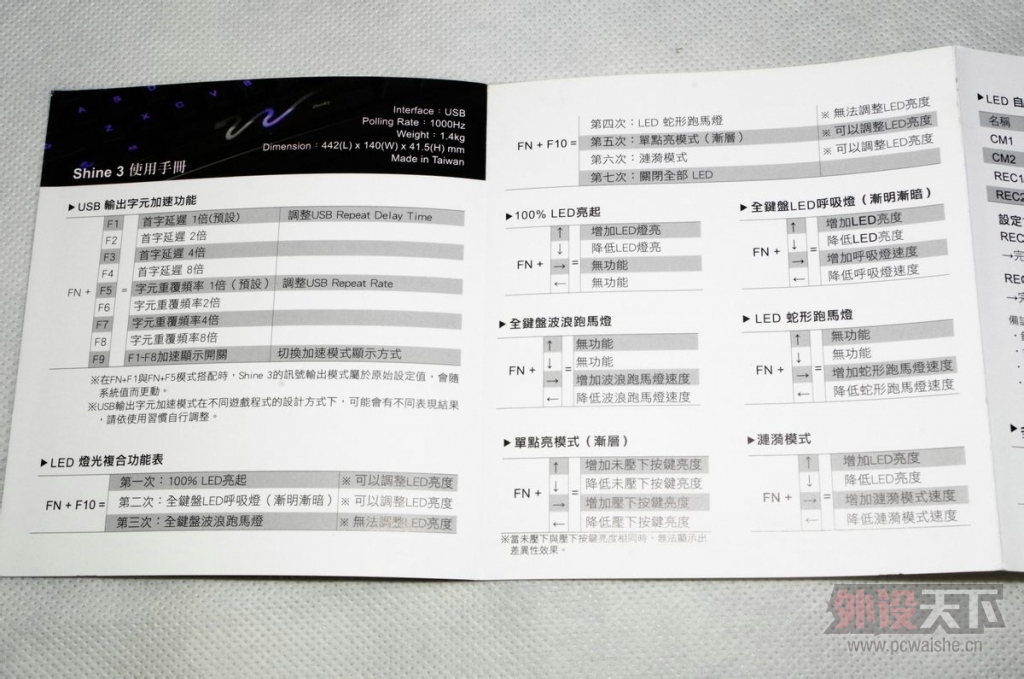 Interface：USB
Polling Rate：1000Hz
Weight：1.4kg
Dimension：442(L) x 140(W) x 41.5(H) mm
Made in Taiwan
Shine 3 使用手冊
▶USB 輸出字元加速功能
FN +
F1 首字延遲 1倍(預設) 調整USB Repeat Delay Time
F2 首字延遲 2倍
F3 首字延遲 4倍
F4 首字延遲 8倍
F5 = 字元重覆頻率 1倍（預設） 調整USB Repeat Rate
F6 字元重覆頻率2倍
F7 字元重覆頻率4倍
F8 字元重覆頻率8倍
F9 F1-F8加速顯示開關 切換加速模式顯示方式
※在FN+F1與FN+F5模式搭配時，Shine 3的訊號輸出模式屬於原始設定值，會隨
系統值而更動。
※USB輸出字元加速模式在不同遊戲程式的設計方式下，可能會有不同表現結果
，請依使用習慣自行調整。
▶LED 燈光複合功能表
FN + F10 =
第一次：100% LED亮起 ※ 可以調整LED亮度
第二次：全鍵盤LED呼吸燈（漸明漸暗） ※ 可以調整LED亮度
第三次：全鍵盤波浪跑馬燈 ※ 無法調整LED亮度
FN + F10 =
第四次：LED 蛇形跑馬燈 ※ 無法調整LED亮度
第五次：單點亮模式（漸層） ※ 可以調整LED亮度
第六次：漣漪模式 ※ 可以調整LED亮度
第七次：關閉全部 LED
▶100% LED亮起
FN + =
↑ 增加LED燈亮
↓ 降低LED燈亮
→ 無功能
← 無功能
▶全鍵盤波浪跑馬燈
FN + =
↑ 無功能
↓ 無功能
→ 增加波浪跑馬燈速度
← 降低波浪跑馬燈速度
▶單點亮模式（漸層）
FN + =
↑ 增加未壓下按鍵亮度
↓ 降低未壓下按鍵亮度
→ 增加壓下按鍵亮度
← 降低壓下按鍵亮度
※當未壓下與壓下按鍵亮度相同時，無法顯示出
差異性效果。
▶全鍵盤LED呼吸燈（漸明漸暗）
FN + =
↑ 增加LED亮度
↓ 降低LED亮度
→ 增加呼吸燈速度
← 降低呼吸燈速度
▶LED 蛇形跑馬燈
FN + =
↑ 無功能
↓ 無功能
→ 增加蛇形跑馬燈速度
← 降低蛇形跑馬燈速度
▶漣漪模式
FN + =
↑ 增加LED亮度
↓ 降低LED亮度
→ 增加漣漪模式速度
← 降低漣漪模式速度
▶LED 自
名稱
CM1
CM2
REC1
REC2
設定
REC
→完
REC
→完
外设天下
www.pcwaishe.cn